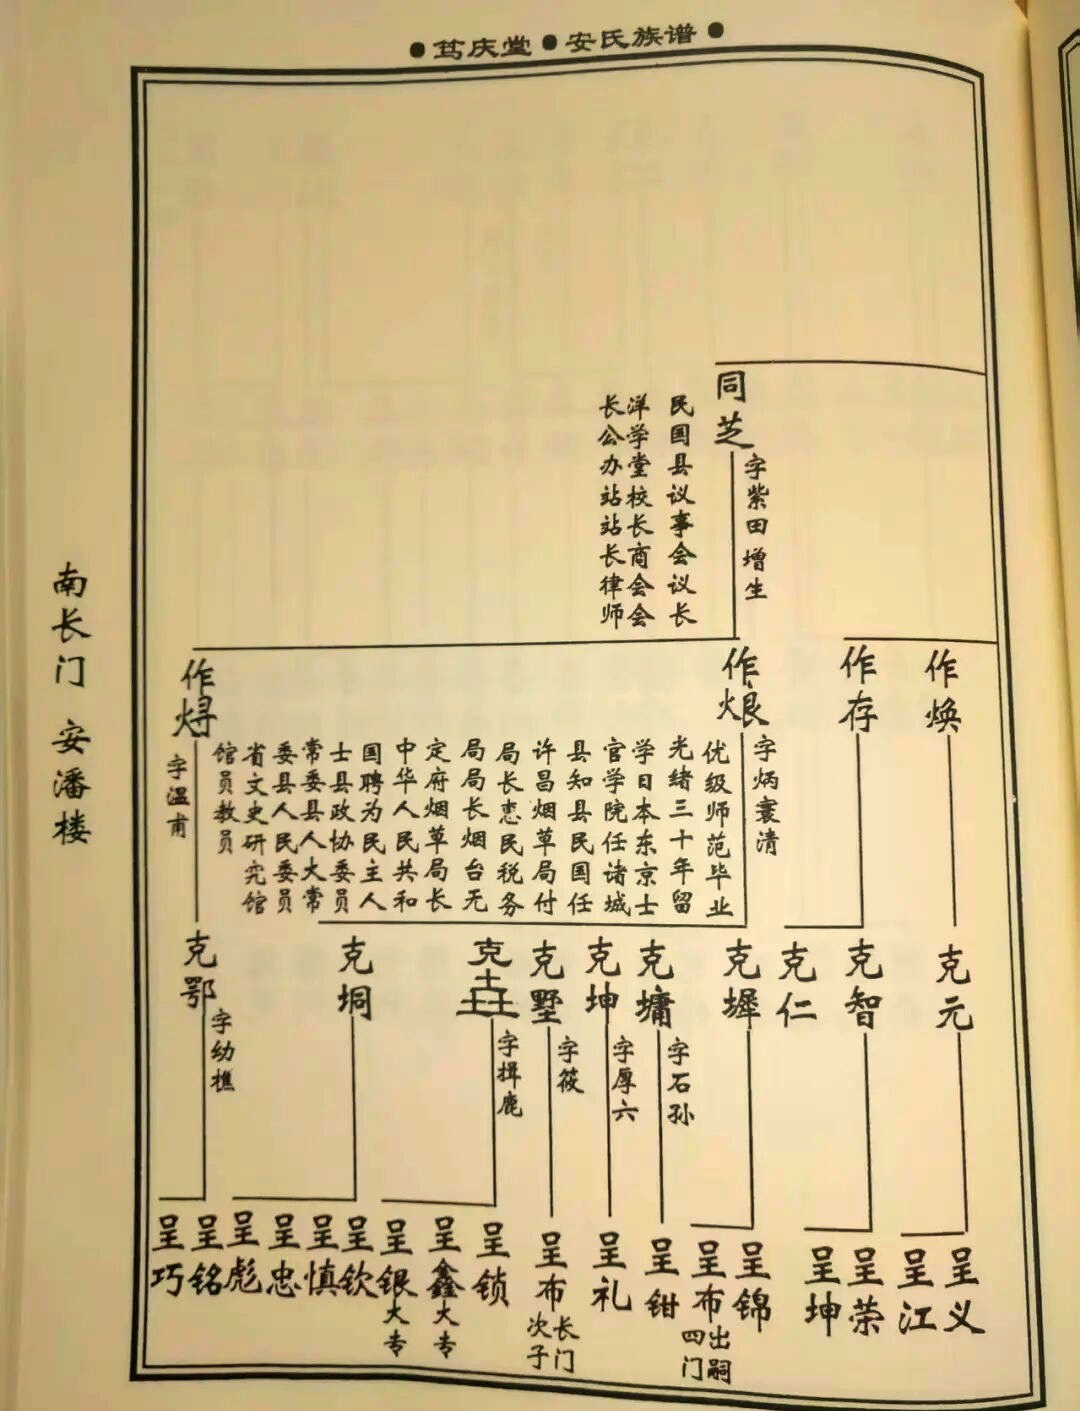 ●笃庆堂●安氏族谱●
同芝
字紫田增生
民国县议事会议长
洋学堂校长商会会
长公办站站长律师
作焕
作存
作
字炳寰清
优级师范毕业
光绪三十年留
学日本东京士
官学院任诸城
县知县民国任
许昌烟草局付
局长惠民税务
局局长烟台无
定府烟草局长
中华人民共和
国聘为民主人
士县政协委员
常委县人大常
委县人民委员
省文史研究馆
馆员教员
作𬊈
字温甫
克元
克智
克仁
克墀
克墉
字石孙
克坤
字厚六
克墅
字筱
克垚
字揖鹿
克垌
克鄂
字幼樵
呈义
呈江
呈荣
呈坤
呈锦
呈布
出嗣
四门
呈钳
呈礼
呈布
长门
次子
呈锁
呈鑫大专
呈银大专
呈钦
呈慎
呈忠
呈彪
呈铭
呈巧
南长门 安潘楼